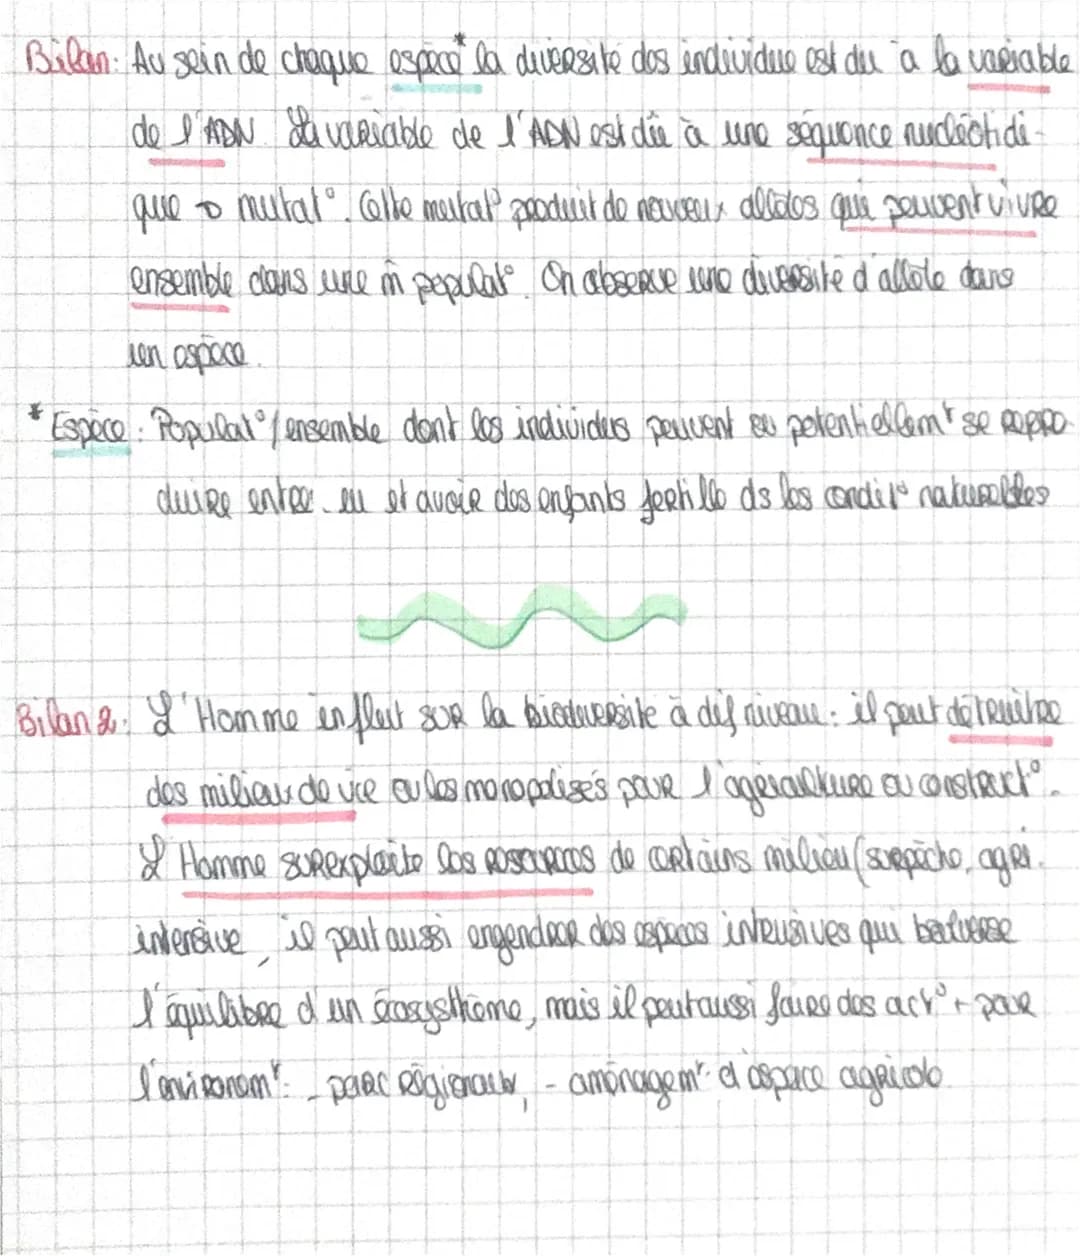 Bilan: Au sein de chaque espèce* la diversité des individue est du à la variable
de l'ADN. La variable de l'ADN est dûe à une séquence nucléotidi-
que → mutat°. Cette mutat° produit de nouveaux allèles qui peuvent vivre
ensemble dans une m̂ populat°. On observe une diversité d'allèle dans
une espèce.
*Espèce: Populat°/ensemble dont les individus peuvent ou potentiellemt se repro-
duire entre eu et avoir des enfants fertille ds les condit° naturelles
Bilan 2: L'Homme influt sur la biodiversité à dif niveau: il peut détruitre
des milieux de vie ou les monopolisés pour l'agriculture ou construct°.
L'Homme surexploite les ressources de certains milieu (surpêche, agri.
intensive, il peut aussi engendrer des espèces intrusives qui bouleverse
l'équilibre d'un écosysthème, mais il peut aussi faire des act° + pour
l'environnemt: - parc régionaux, - aménagemt d'espace agricole